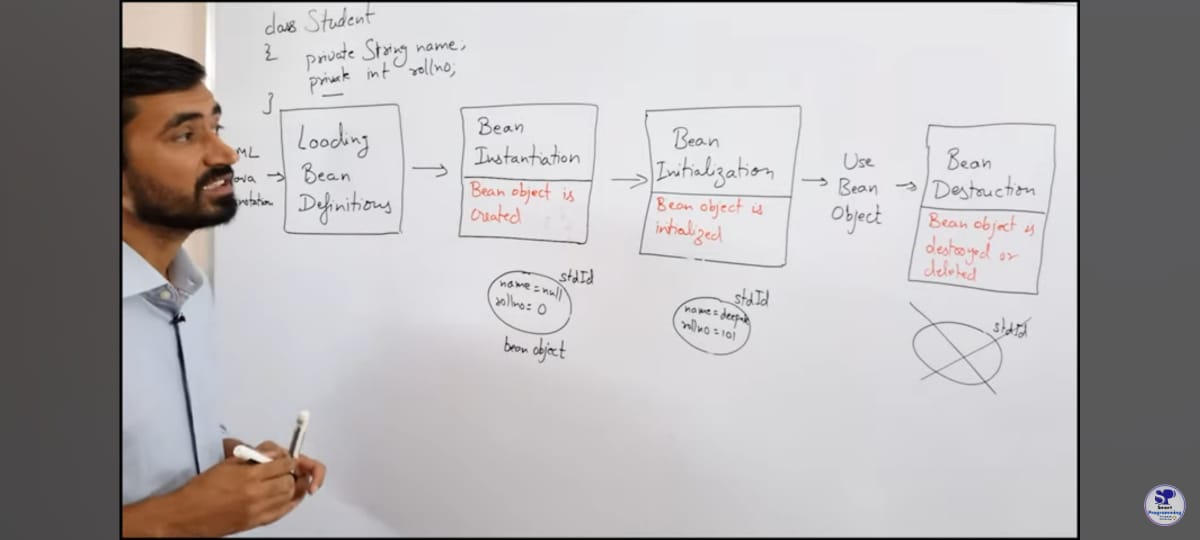 class Student
{
private String name;
private int rollno;
}
Loading
Bean
Definitions
Bean
Instantiation
Bean object is
created
stdId
name = null
rollno = 0
bean object
Bean
Initialization
Bean object is
initialized
stdId
name = deepak
rollno = 101
Use
Bean
Object
Bean
Destruction
Bean object is
destroyed or
deleted
stdId
SP
Smart
Programming